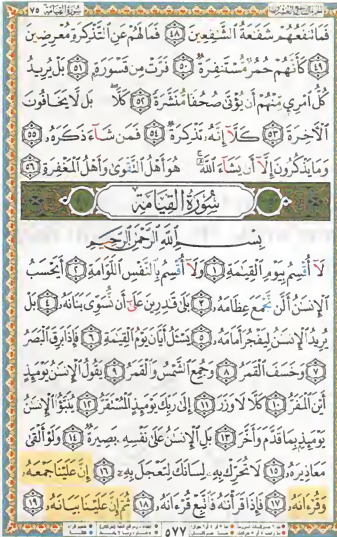 سُورَةُ القِيَامَةِ ٧٥
فَمَا تَنفَعُهُمْ شَفَٰعَةُ ٱلشَّٰفِعِينَ ٤٨ فَمَا لَهُمْ عَنِ ٱلتَّذْكِرَةِ مُعْرِضِينَ
٤٩ كَأَنَّهُمْ حُمُرٌ مُّسْتَنفِرَةٌ ٥٠ فَرَّتْ مِن قَسْوَرَةٍ ٥١ بَلْ يُرِيدُ
كُلُّ ٱمْرِئٍ مِّنْهُمْ أَن يُؤْتَىٰ صُحُفًا مُّنَشَّرَةً ٥٢ كَلَّا بَل لَّا يَخَافُونَ
ٱلْءَاخِرَةَ ٥٣ كَلَّآ إِنَّهُۥ تَذْكِرَةٌ ٥٤ فَمَن شَآءَ ذَكَرَهُۥ ٥٥
وَمَا يَذْكُرُونَ إِلَّآ أَن يَشَآءَ ٱللَّهُ هُوَ أَهْلُ ٱلتَّقْوَىٰ وَأَهْلُ ٱلْمَغْفِرَةِ ٥٦
سُورَةُ القِيَامَةِ
بِسْمِ ٱللَّهِ ٱلرَّحْمَٰنِ ٱلرَّحِيمِ
لَآ أُقْسِمُ بِيَوْمِ ٱلْقِيَٰمَةِ ١ وَلَآ أُقْسِمُ بِٱلنَّفْسِ ٱللَّوَّامَةِ ٢ أَيَحْسَبُ
ٱلْإِنسَٰنُ أَلَّن نَّجْمَعَ عِظَامَهُۥ ٣ بَلَىٰ قَٰدِرِينَ عَلَىٰٓ أَن نُّسَوِّىَ بَنَانَهُۥ ٤ بَلْ
يُرِيدُ ٱلْإِنسَٰنُ لِيَفْجُرَ أَمَامَهُۥ ٥ يَسْـَٔلُ أَيَّانَ يَوْمُ ٱلْقِيَٰمَةِ ٦ فَإِذَا بَرِقَ ٱلْبَصَرُ
٧ وَخَسَفَ ٱلْقَمَرُ ٨ وَجُمِعَ ٱلشَّمْسُ وَٱلْقَمَرُ ٩ يَقُولُ ٱلْإِنسَٰنُ يَوْمَئِذٍ
أَيْنَ ٱلْمَفَرُّ ١٠ كَلَّا لَا وَزَرَ ١١ إِلَىٰ رَبِّكَ يَوْمَئِذٍ ٱلْمُسْتَقَرُّ ١٢ يُنَبَّؤُا۟ ٱلْإِنسَٰنُ
يَوْمَئِذٍۭ بِمَا قَدَّمَ وَأَخَّرَ ١٣ بَلِ ٱلْإِنسَٰنُ عَلَىٰ نَفْسِهِۦ بَصِيرَةٌ ١٤ وَلَوْ أَلْقَىٰ
مَعَاذِيرَهُۥ ١٥ لَا تُحَرِّكْ بِهِۦ لِسَانَكَ لِتَعْجَلَ بِهِۦٓ ١٦ إِنَّ عَلَيْنَا جَمْعَهُۥ
وَقُرْءَانَهُۥ ١٧ فَإِذَا قَرَأْنَٰهُ فَٱتَّبِعْ قُرْءَانَهُۥ ١٨ ثُمَّ إِنَّ عَلَيْنَا بَيَانَهُۥ ١٩
٥٧٧